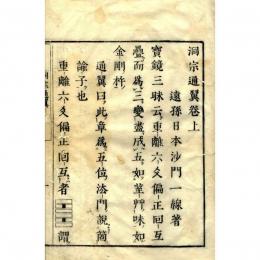 洞宗通翼卷上
遠孫日本沙門一線著
寶鏡三昧云重離六爻偏正回互
疊而爲三變盡成五如荎艸味如
金剛杵
通翼曰此章爲五位法門説箇
諭子也
重離六爻偏正回互者謂